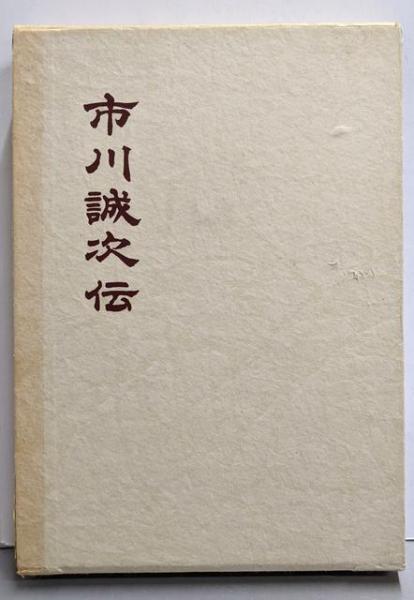 市川誠次伝